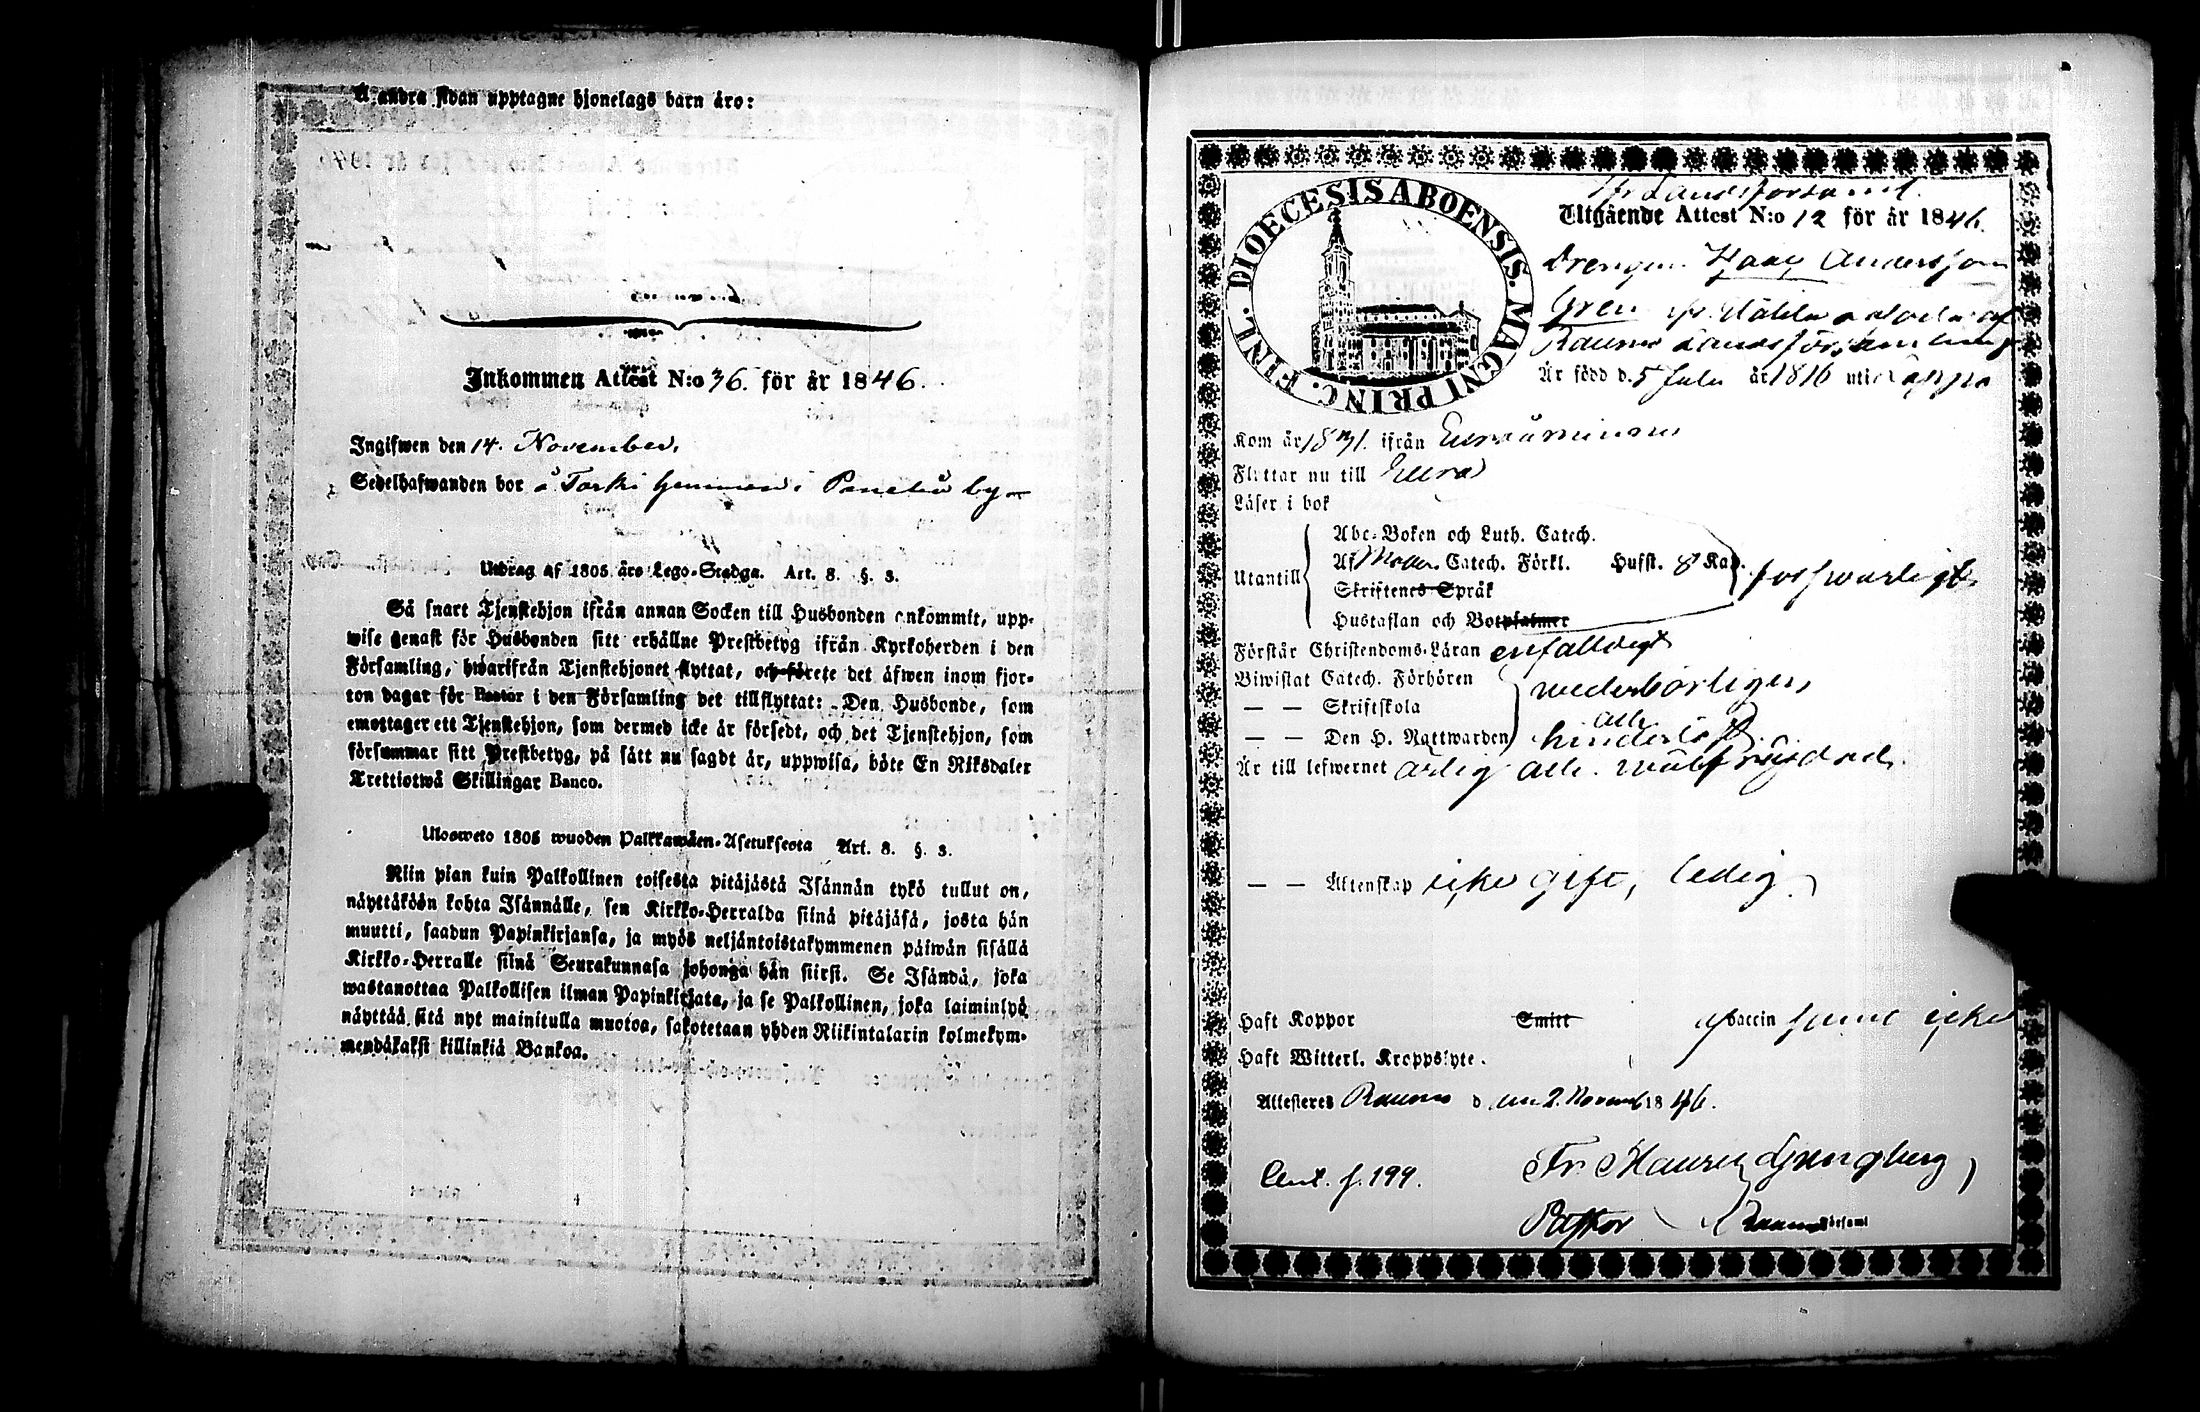 Å andra sidan upptagne hjonelags barn äro:
Inkommen Attest N:o 36. för år 1846.
Ingifwen den 14. November.
Sedelhafwanden bor å Torki hemman i Panelia by
Utdrag af 1805 års Lego-Stadga. Art. 8. §. 3.
Så snart Tjenstehjon ifrån annan Socken till Husbonden ankommit, upp-
wise genast för Husbonden sitt erhållne Prestbetyg ifrån Kyrkoherden i den
Församling, hwarifrån Tjenstehjonet flyttat, och förete det äfwen inom fjor-
ton dagar för Pastor i den Församling det tillflyttat: Den Husbonde, som
emottager ett Tjenstehjon, som dermed icke är försedt, och det Tjenstehjon, som
försummar sitt Prestbetyg, på sätt nu sagdt är, uppwisa, böte En Riksdaler
Trettiotwå Skillingar Banco.
Ulosweto 1805 wuoden Palkkawäen-Asetuksesta Art. 8. §. 3.
Niin pian kuin Palkollinen toisesta pitäjästä Isännän tykö tullut on,
näyttäköön kohta Isännälle, sen Kirkko-Herralda siinä pitäjäsä, josta hän
muutti, saadun Papinkirjansa, ja myös neljäntoistakymmenen päiwän sisällä
Kirkko-Herralle siinä Seurakunnasa johonga hän siirsi. Se Isändä, joka
wastanottaa Palkollisen ilman Papinkirjata, ja se Palkollinen, joka laiminlyö
näyttää sitä nyt mainitulla muotoa, sakotetaan yhden Riikintalarin kolmekym-
mendäkaksi killinkiä Bankoa.
DIOECESIS ABOENSIS. MAGNI PRINC. FINL.
fr Landsförsaml.
Utgående Attest N:o 12 för år 1846.
Drengen Isaac Andersson
Gren fr. af
Raumo Landsförsamling
Är född d. 5 Julii år 1816 uti Lappo
Kom år 1831. ifrån Euraåminne
Flyttar nu till Eura
Läser i bok
Abc-Boken och Luth. Catech.
Utantill Af Catech. Förkl. Hufst. 8 Kap. försvarligt
Skriftenes Språk
Hustaflan och Botpsalmer
Förstår Christendoms-Läran enfalldigt
Biwistat Catech. Förhören wederbörligen
— — Skriftskola och
— — Den H. Nattwarden hinderlös
Är till lefwernet ärlig och wälfrägdad.
— — Äktenskap icke gift, ledig.
Haft Koppor Smitt af vaccin samt icke
Haft Witterl. Kroppslyte.
Attesteras Raumo d den 2. Novemb 1846.
Cont. f. 199.
Fr. Maurez Ljungberg
Pastor i Raumo Församl